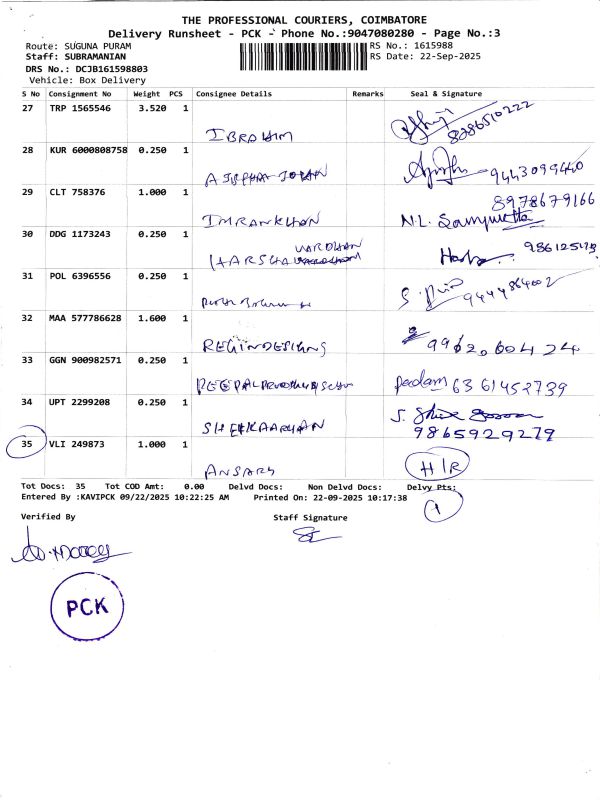 THE PROFESSIONAL COURIERS, COIMBATORE
Delivery Runsheet - PCK - Phone No.:9047080280 - Page No.:3
Route: SUGUNA PURAM RS No.: 1615988
Staff: SUBRAMANIAN RS Date: 22-Sep-2025
DRS No.: DCJB161598803
Vehicle: Box Delivery
S No Consignment No Weight PCS Consignee Details Remarks Seal & Signature
27 TRP 1565546 3.520 1
IBRAHIM 8286510222
28 KUR 6000808758 0.250 1
9443099440
29 CLT 758376 1.000 1 8978679166
IMRANKHAN N.L.
30 DDG 1173243 0.250 1
HARSHA VARDHAN
31 POL 6396556 0.250 1
9444864002
32 MAA 577786628 1.600 1
REGINDESIGNS 9962060424
33 GGN 900982571 0.250 1
padam 6361452739
34 UPT 2299208 0.250 1
9865929279
35 VLI 249873 1.000 1
ANSARY H/R
Tot Docs: 35 Tot COD Amt: 0.00 Delvd Docs: Non Delvd Docs: Delvy Pts:
Entered By :KAVIPCK 09/22/2025 10:22:25 AM Printed On: 22-09-2025 10:17:38
1
Verified By Staff Signature
PCK